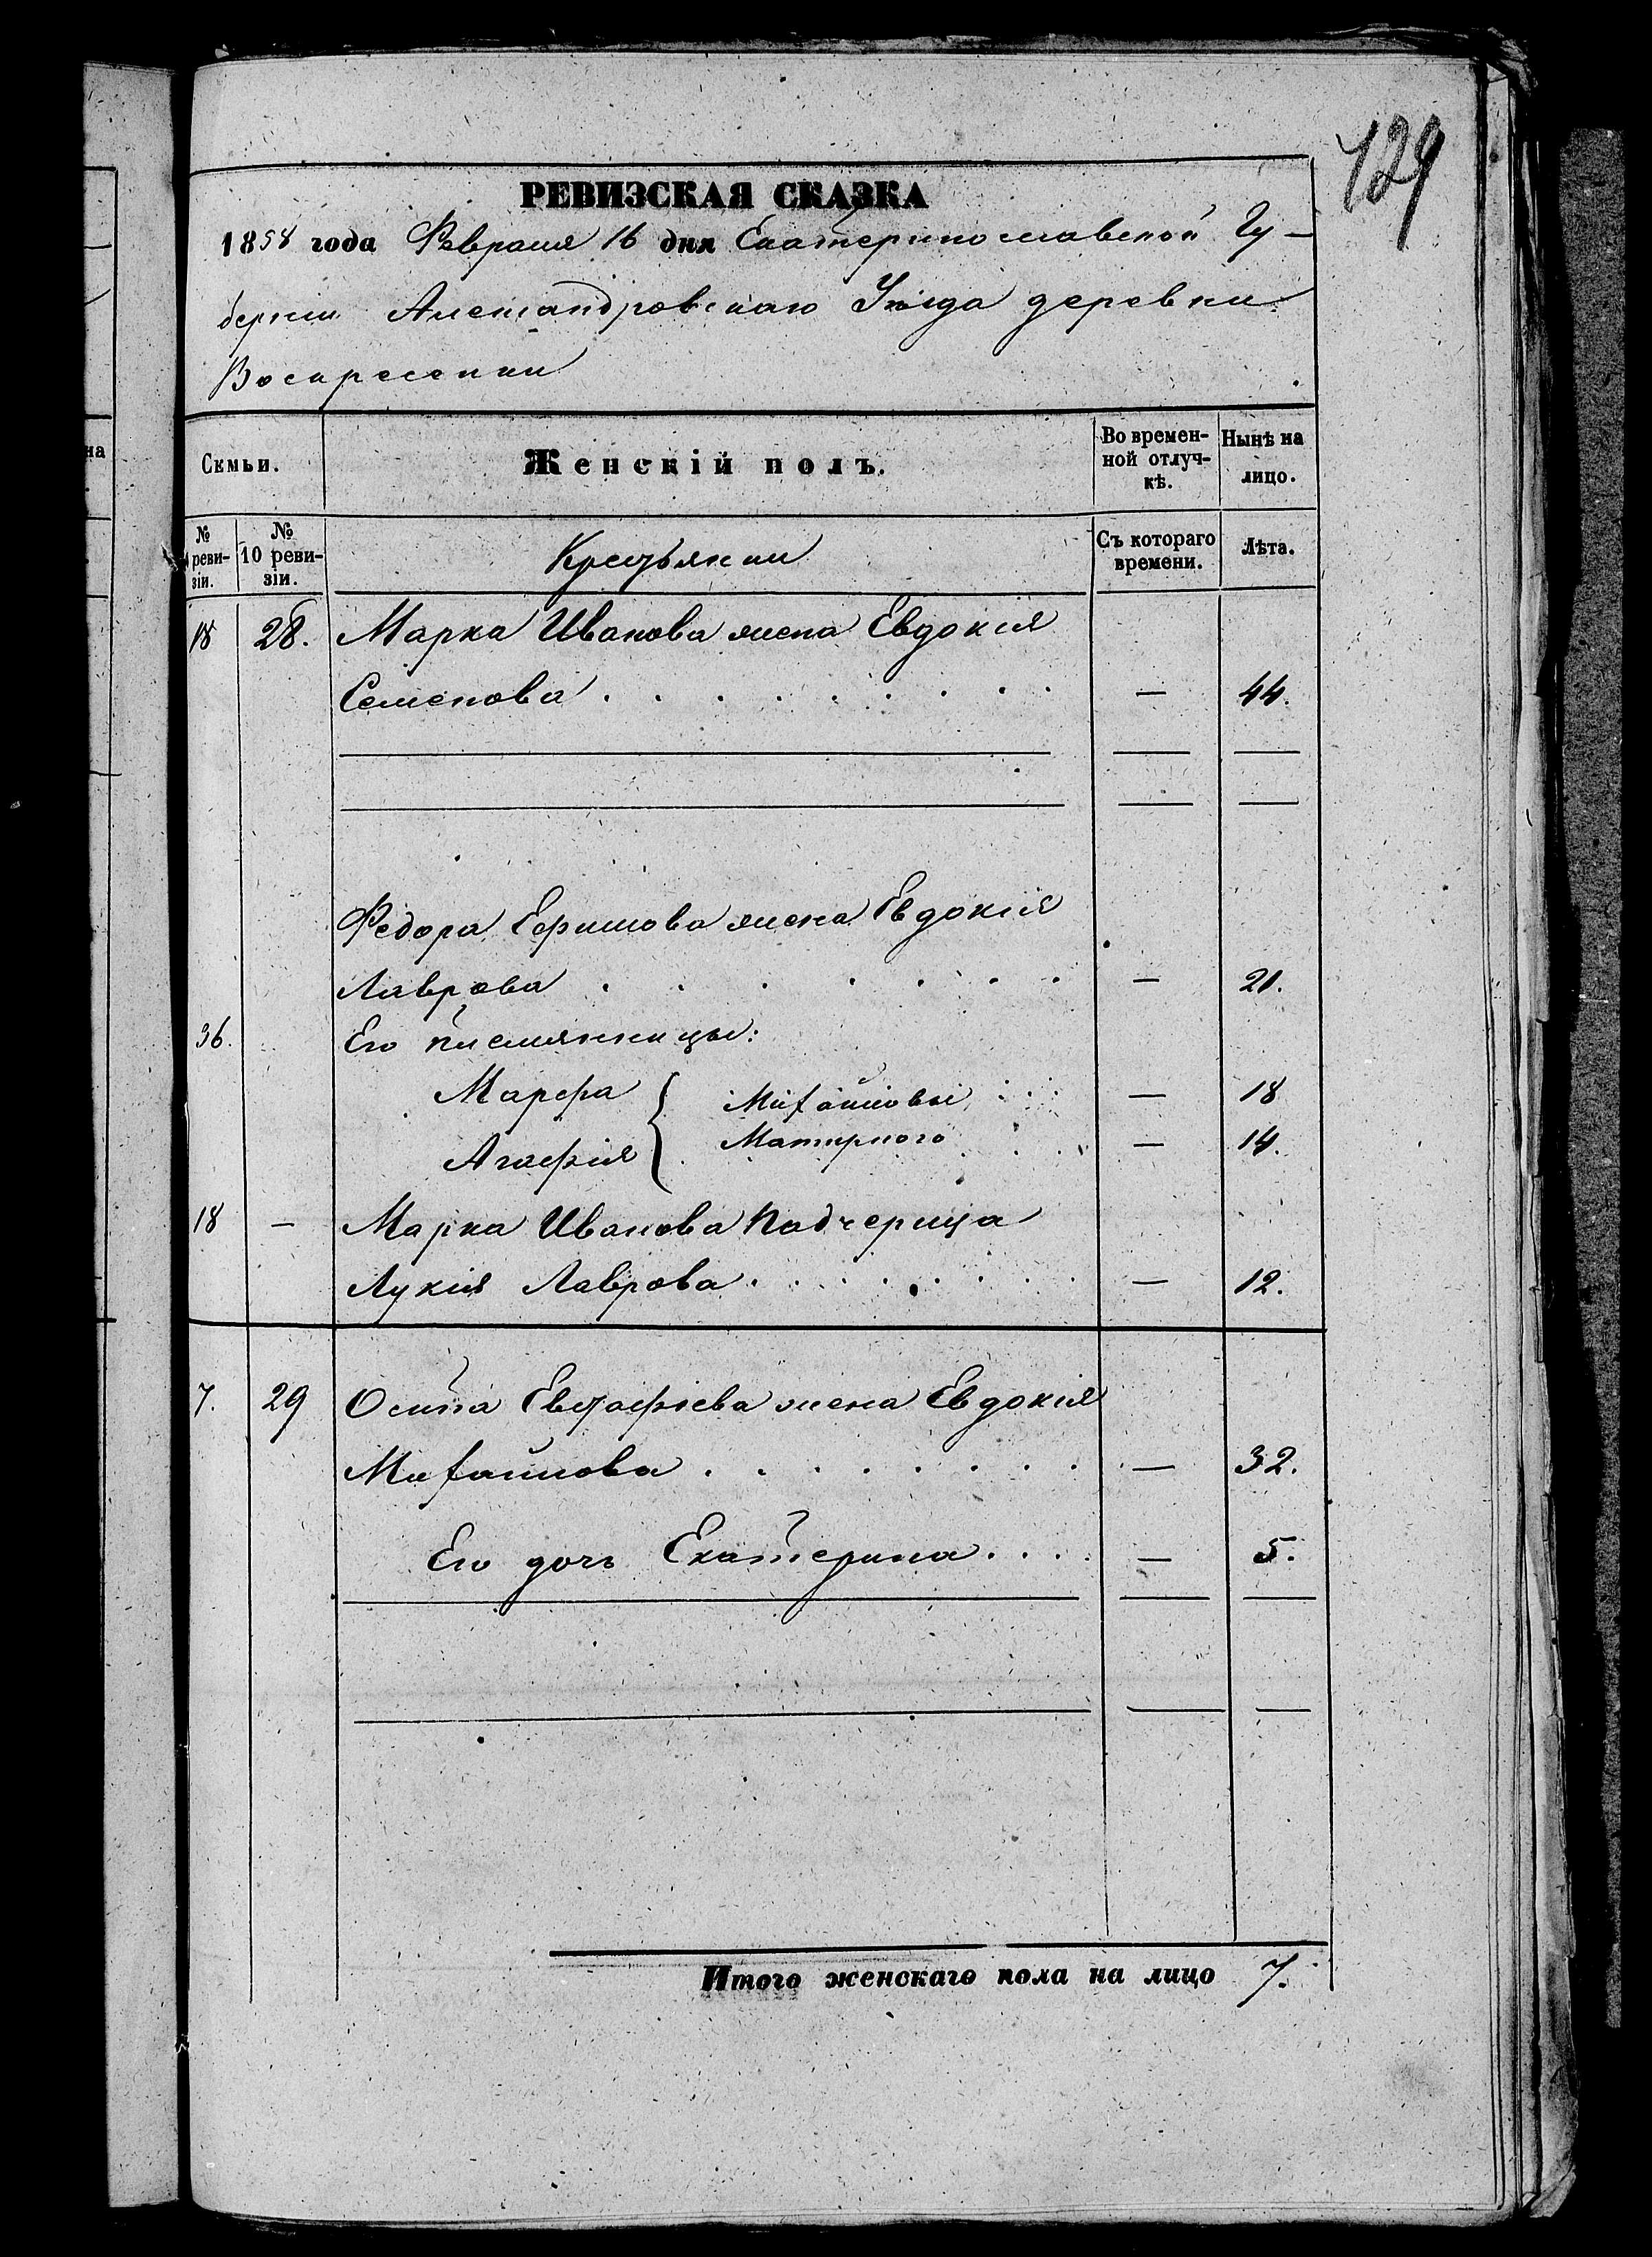 129
РЕВИЗСКАЯ СКАЗКА
1858 года Февраля 16 дня Екатеринославской Гу-
берніи Александровскаго Уѣзда деревни
Воскресенки
Семьи. Женскій полъ. Во времен-ной отлуч-кѣ. Нынѣ на лицо.
№ реви-зіи. № 10 реви-зіи. Крестьянки Съ котораго времени. Лѣта.
18 28. Марка Иванова жена Евдокія
Семенова . . . . . . . . . — 44.
Федора Ефимова жена Евдокія
Лаврова . . . . . . . — 21.
36. Его племянницы:
Марфа { Михайловы . . . — 18
Агафія Матирного . . . — 14.
18 — Марка Иванова падчерица
Лукія Лаврова . . . . . . . — 12.
7. 29 Осипа Евстафіева жена Евдокія
Михайлова . . . . . . . . — 32.
Его дочь Екатерина . . . . — 5.
Итого женскаго пола на лицо 7.
на